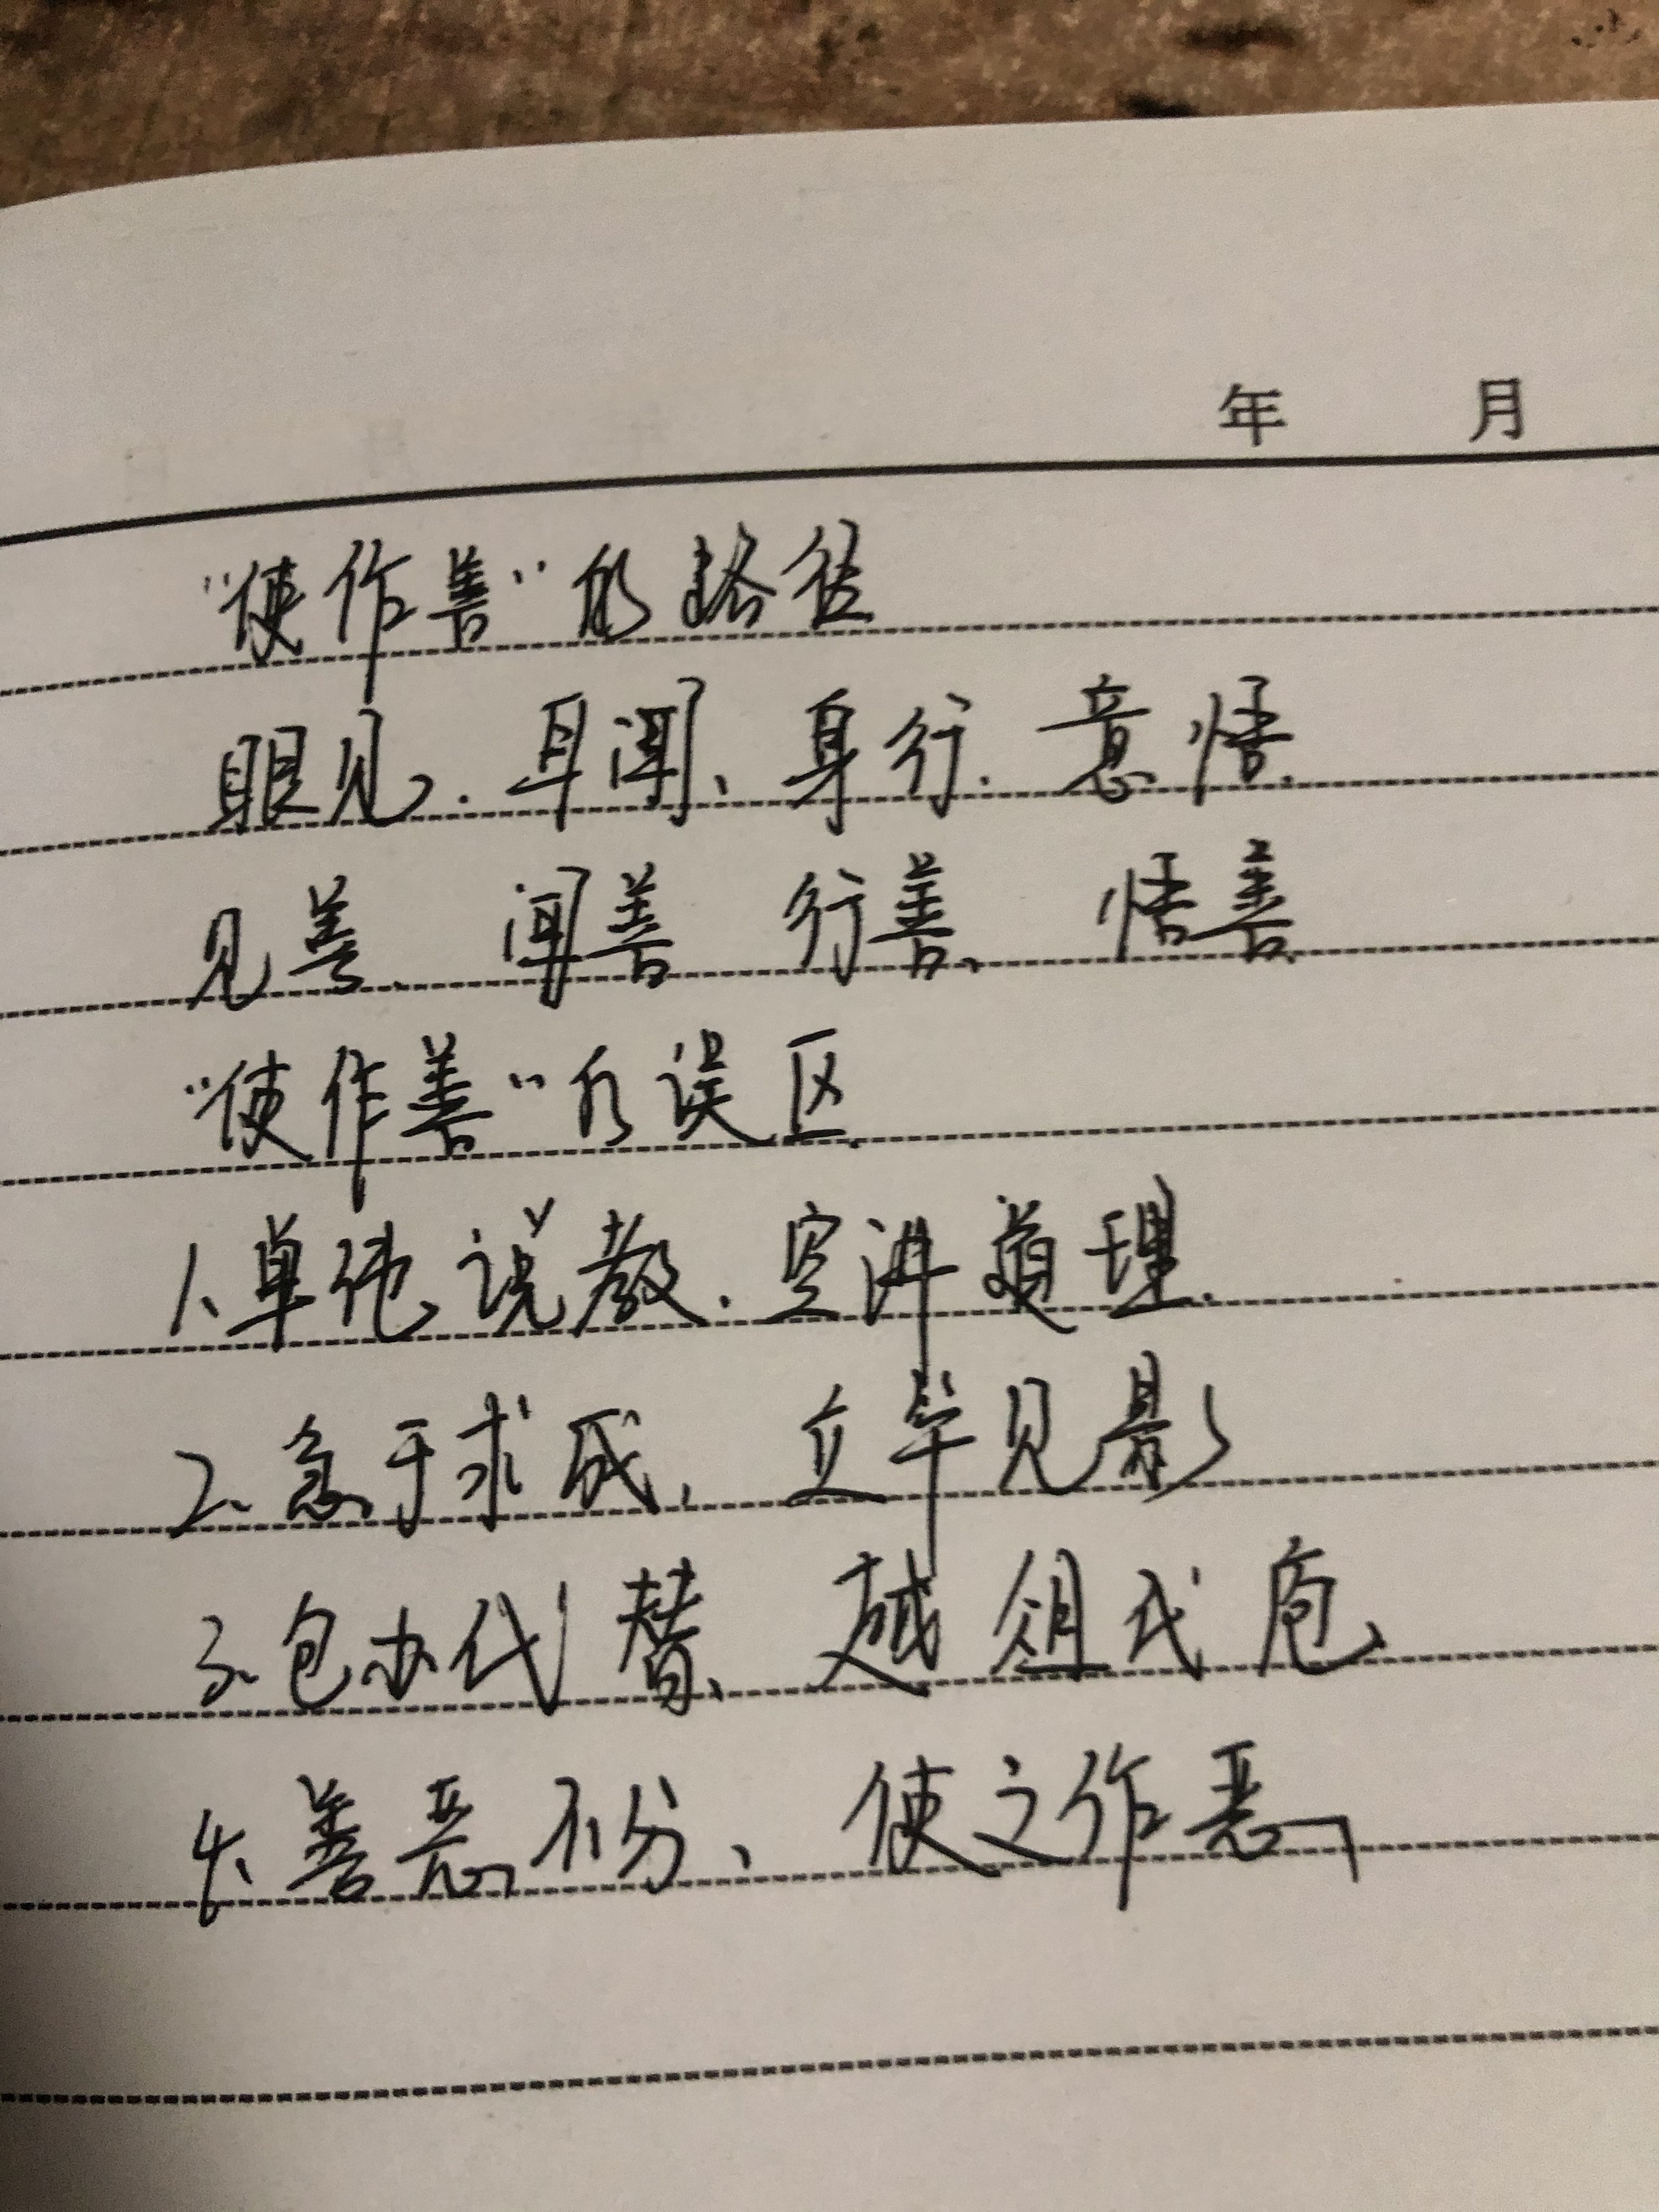 年 月
“使作善”的路径
眼见、耳闻、身行、意悟、
见善、闻善 行善、悟善、
“使作善”的误区、
1、单纯说教、空讲道理、
2、急于求成、立竿见影
3、包办代替、越俎代庖、
4、善恶不分、使之作恶